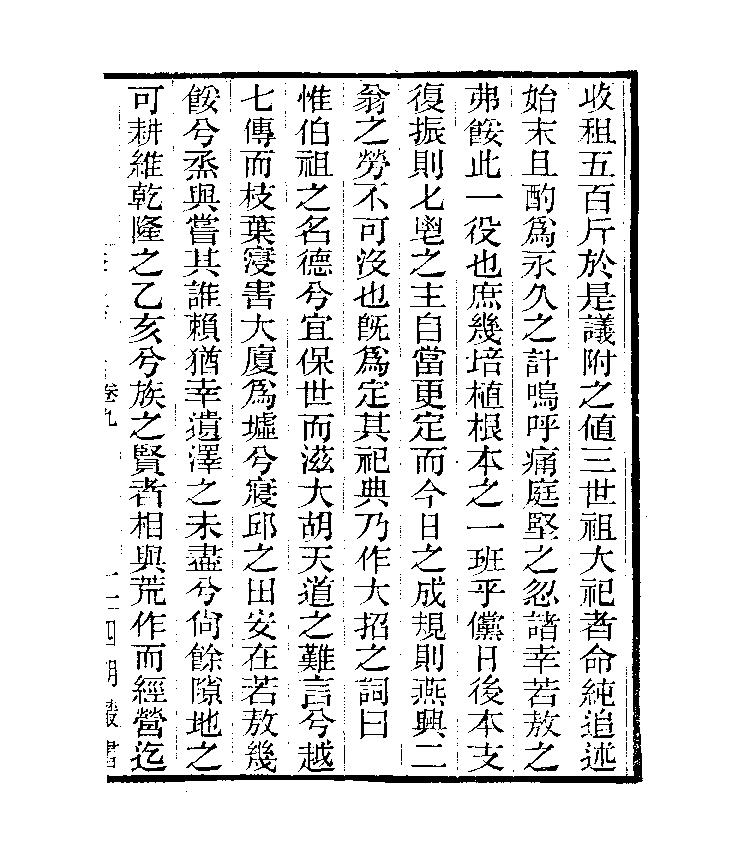 收租五百斤於是議附之値三世祖大祀者命純追述
始末且酌爲永久之計嗚呼痛庭堅之忽諸幸若敖之
弗餒此一役也庶幾培植根本之一班乎儻日後本支
復振則匕鬯之主自當更定而今日之成規則燕興二
翁之勞不可沒也旣爲定其祀典乃作大招之詞曰
惟伯祖之名德兮宜保世而滋大胡天道之難言兮越
七傳而枝葉寖害大廈爲墟兮寢邱之田安在若敖幾
餒兮烝與嘗其誰賴猶幸遺澤之未盡兮尙餘隙地之
可耕維乾隆之乙亥兮族之賢者相與荒作而經營迄
卷九
四明叢書